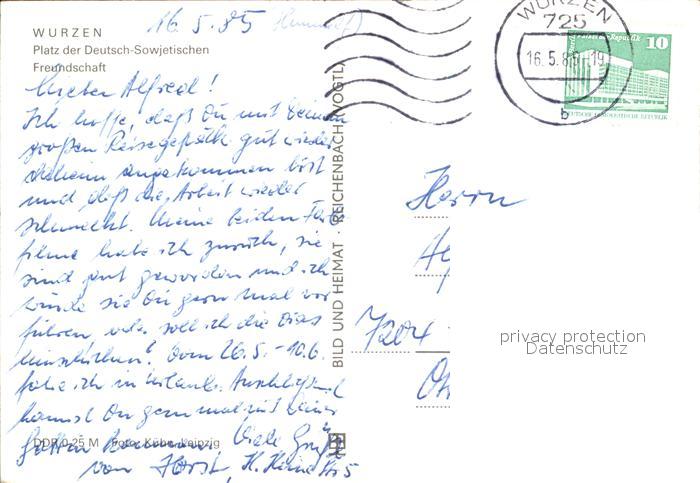 WURZEN
Platz der Deutsch-Sowjetischen
Freundschaft
16.5.85
Lieber Alfred!
Ich hoffe, daß Du mit Deinem
großen Reisegepäck gut wieder
daheim angekommen bist
und daß die Arbeit wieder
schmeckt. Meine beiden
filme habe ich zurück, sie
sind gut geworden und ich
würde sie Dir gern mal vor
führen, oder soll ich die Dias
einschicken? Vom 26.5.-10.6.
fahre ich in Urlaub. Anschließend
kannst Du gern mal mit Deiner
Gattin kommen. Viele Grüße
von Horst, H. Heine Str 5
DDR 0,25 M Foto: Kühn, Leipzig
BILD UND HEIMAT · REICHENBACH (VOGTL)
WURZEN
725
16.5.85-19
b
10
DEUTSCHE DEMOKRATISCHE REPUBLIK
Herrn
privacy protection
Datenschutz